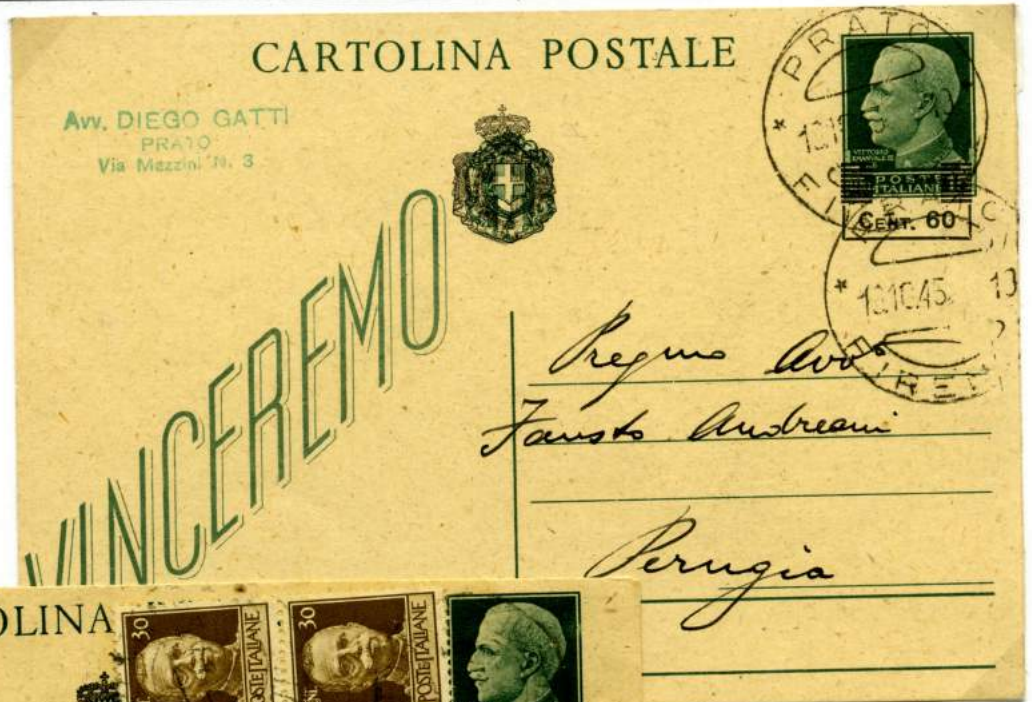 CARTOLINA POSTALE
Avv. DIEGO GATTI
PRATO
Via Mazzini N. 3
PRATO
VITTORIO
EMANVELE III
POSTE
ITALIANE
CENT. 60
10.10.45
FIREN
VINCEREMO
Pregmo Avvo
Fausto Andreani
Perugia
OLINA
30
POSTE ITALIANE
30
POSTE ITALIANE